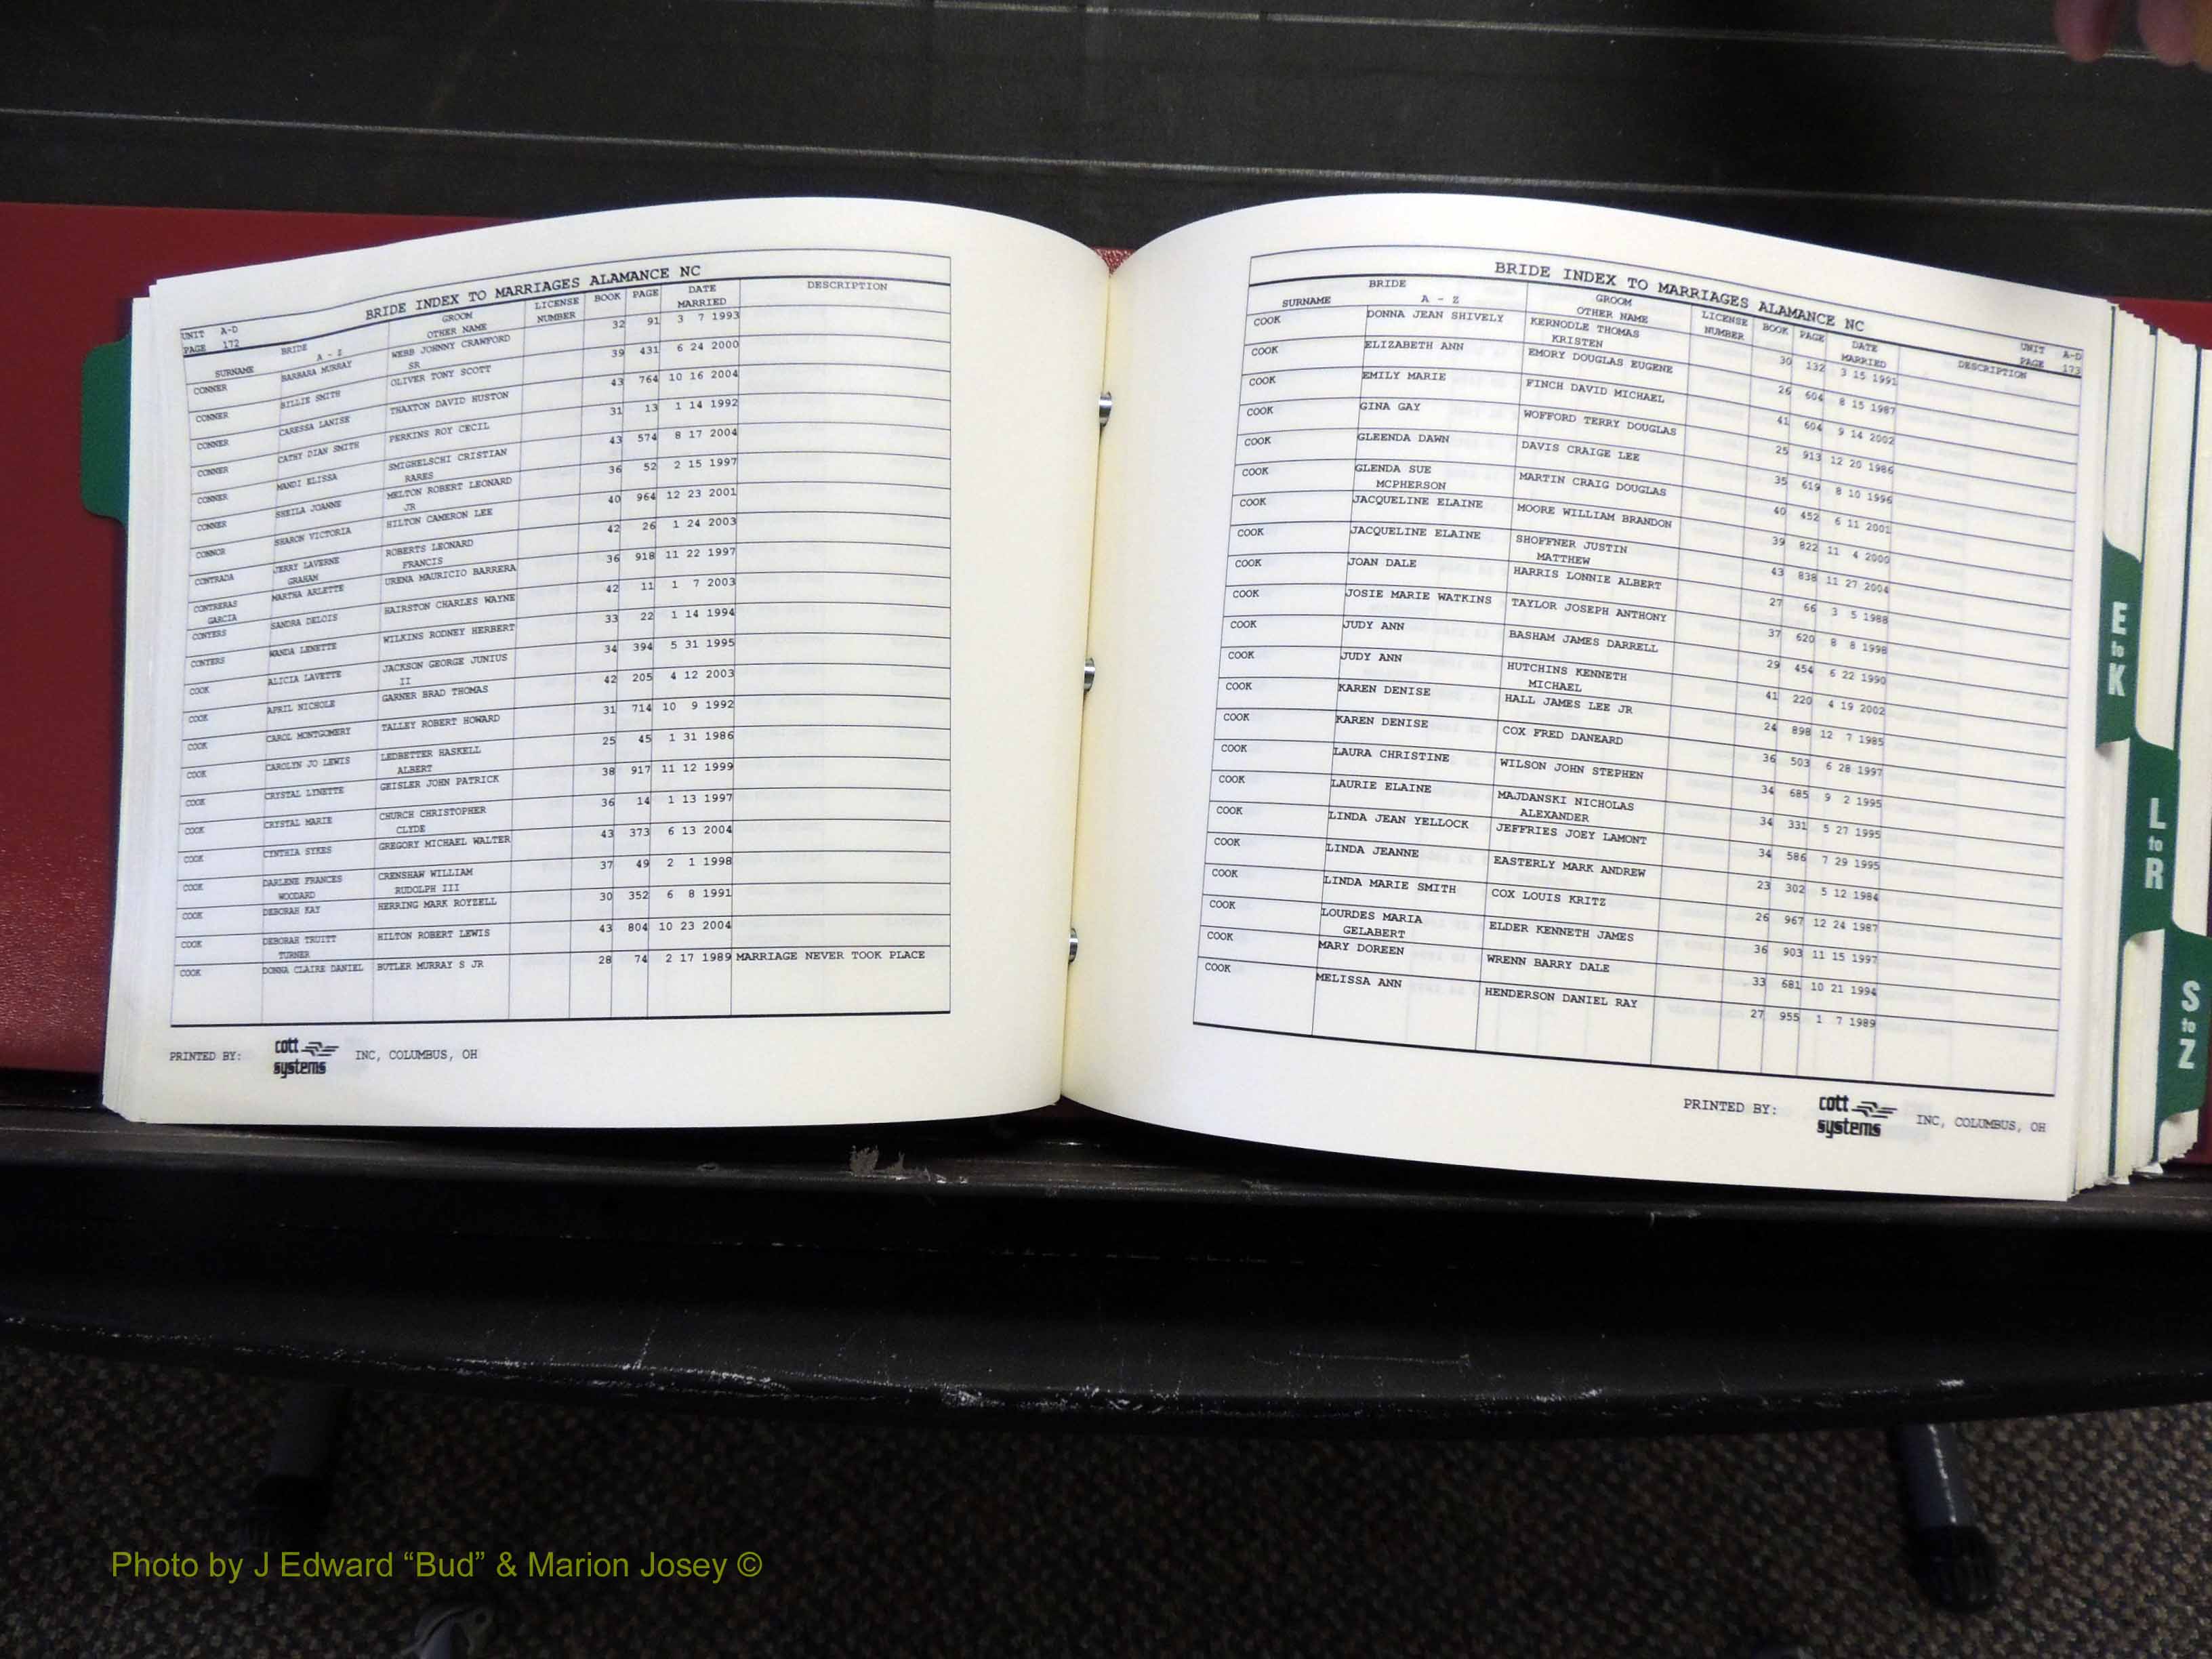 BRIDE INDEX TO MARRIAGES ALAMANCE NC
UNIT A-D
PAGE 172
SURNAME BRIDE A - Z GROOM OTHER NAME LICENSE NUMBER BOOK PAGE DATE MARRIED DESCRIPTION
CONNER BARBARA MURRAY WEBB JOHNNY CRAWFORD SR 32 91 3 7 1993
CONNER BILLIE SMITH OLIVER TONY SCOTT 39 431 6 24 2000
CONNER CARESSA LANISE THAXTON DAVID HUSTON 43 764 10 16 2004
CONNER CATHY DIAN SMITH PERKINS ROY CECIL 31 13 1 14 1992
CONNER MANDI ELISSA SMIGHELSCHI CRISTIAN RARES 43 574 8 17 2004
CONNER SHEILA JOANNE MELTON ROBERT LEONARD JR 36 52 2 15 1997
CONNOR SHARON VICTORIA HILTON CAMERON LEE 40 964 12 23 2001
CONTRADA JERRY LAVERNE GRAHAM ROBERTS LEONARD FRANCIS 42 26 1 24 2003
CONTRERAS GARCIA MARTHA ARLETTE URENA MAURICIO BARRERA 36 918 11 22 1997
CONYERS SANDRA DELOIS HAIRSTON CHARLES WAYNE 42 11 1 7 2003
CONYERS WANDA LENETTE WILKINS RODNEY HERBERT 33 22 1 14 1994
COOK ALICIA LAVETTE JACKSON GEORGE JUNIUS II 34 394 5 31 1995
COOK APRIL NICHOLE GARNER BRAD THOMAS 42 205 4 12 2003
COOK CAROL MONTGOMERY TALLEY ROBERT HOWARD 31 714 10 9 1992
COOK CAROLYN JO LEWIS LEDBETTER HASKELL ALBERT 25 45 1 31 1986
COOK CRYSTAL LYNETTE GEISLER JOHN PATRICK 38 917 11 12 1999
COOK CRYSTAL MARIE CHURCH CHRISTOPHER CLYDE 36 14 1 13 1997
COOK CYNTHIA SYKES GREGORY MICHAEL WALTER 43 373 6 13 2004
COOK DARLENE FRANCES WOODARD CRENSHAW WILLIAM RUDOLPH III 37 49 2 1 1998
COOK DEBORAH KAY HERRING MARK ROYZELL 30 352 6 8 1991
COOK DEBORAH TRUITT TURNER HILTON ROBERT LEWIS 43 804 10 23 2004
COOK DONNA CLAIRE DANIEL BUTLER MURRAY S JR 28 74 2 17 1989 MARRIAGE NEVER TOOK PLACE
PRINTED BY: cott systems INC, COLUMBUS, OH
BRIDE INDEX TO MARRIAGES ALAMANCE NC
UNIT A-D
PAGE 173
SURNAME BRIDE A - Z GROOM OTHER NAME LICENSE NUMBER BOOK PAGE DATE MARRIED DESCRIPTION
COOK DONNA JEAN SHIVELY KERNODLE THOMAS KRISTEN 30 132 3 15 1991
COOK ELIZABETH ANN EMORY DOUGLAS EUGENE 26 604 8 15 1987
COOK EMILY MARIE FINCH DAVID MICHAEL 41 604 9 14 2002
COOK GINA GAY WOFFORD TERRY DOUGLAS 25 913 12 20 1986
COOK GLEENDA DAWN DAVIS CRAIGE LEE 35 619 8 10 1996
COOK GLENDA SUE MCPHERSON MARTIN CRAIG DOUGLAS 40 452 6 11 2001
COOK JACQUELINE ELAINE MOORE WILLIAM BRANDON 39 822 11 4 2000
COOK JACQUELINE ELAINE SHOFFNER JUSTIN MATTHEW 43 838 11 27 2004
COOK JOAN DALE HARRIS LONNIE ALBERT 27 66 3 5 1988
COOK JOSIE MARIE WATKINS TAYLOR JOSEPH ANTHONY 37 620 8 8 1998
COOK JUDY ANN BASHAM JAMES DARRELL 29 454 6 22 1990
COOK JUDY ANN HUTCHINS KENNETH MICHAEL 41 220 4 19 2002
COOK KAREN DENISE HALL JAMES LEE JR 24 898 12 7 1985
COOK KAREN DENISE COX FRED DANEARD 36 503 6 28 1997
COOK LAURA CHRISTINE WILSON JOHN STEPHEN 34 685 9 2 1995
COOK LAURIE ELAINE MAJDANSKI NICHOLAS ALEXANDER 34 331 5 27 1995
COOK LINDA JEAN YELLOCK JEFFRIES JOEY LAMONT 34 586 7 29 1995
COOK LINDA JEANNE EASTERLY MARK ANDREW 23 302 5 12 1984
COOK LINDA MARIE SMITH COX LOUIS KRITZ 26 967 12 24 1987
COOK LOURDES MARIA GELABERT ELDER KENNETH JAMES 36 903 11 15 1997
COOK MARY DOREEN WRENN BARRY DALE 33 681 10 21 1994
COOK MELISSA ANN HENDERSON DANIEL RAY 27 955 1 7 1989
PRINTED BY: cott systems INC, COLUMBUS, OH
E to K
L to R
S to Z
Photo by J Edward “Bud” & Marion Josey ©